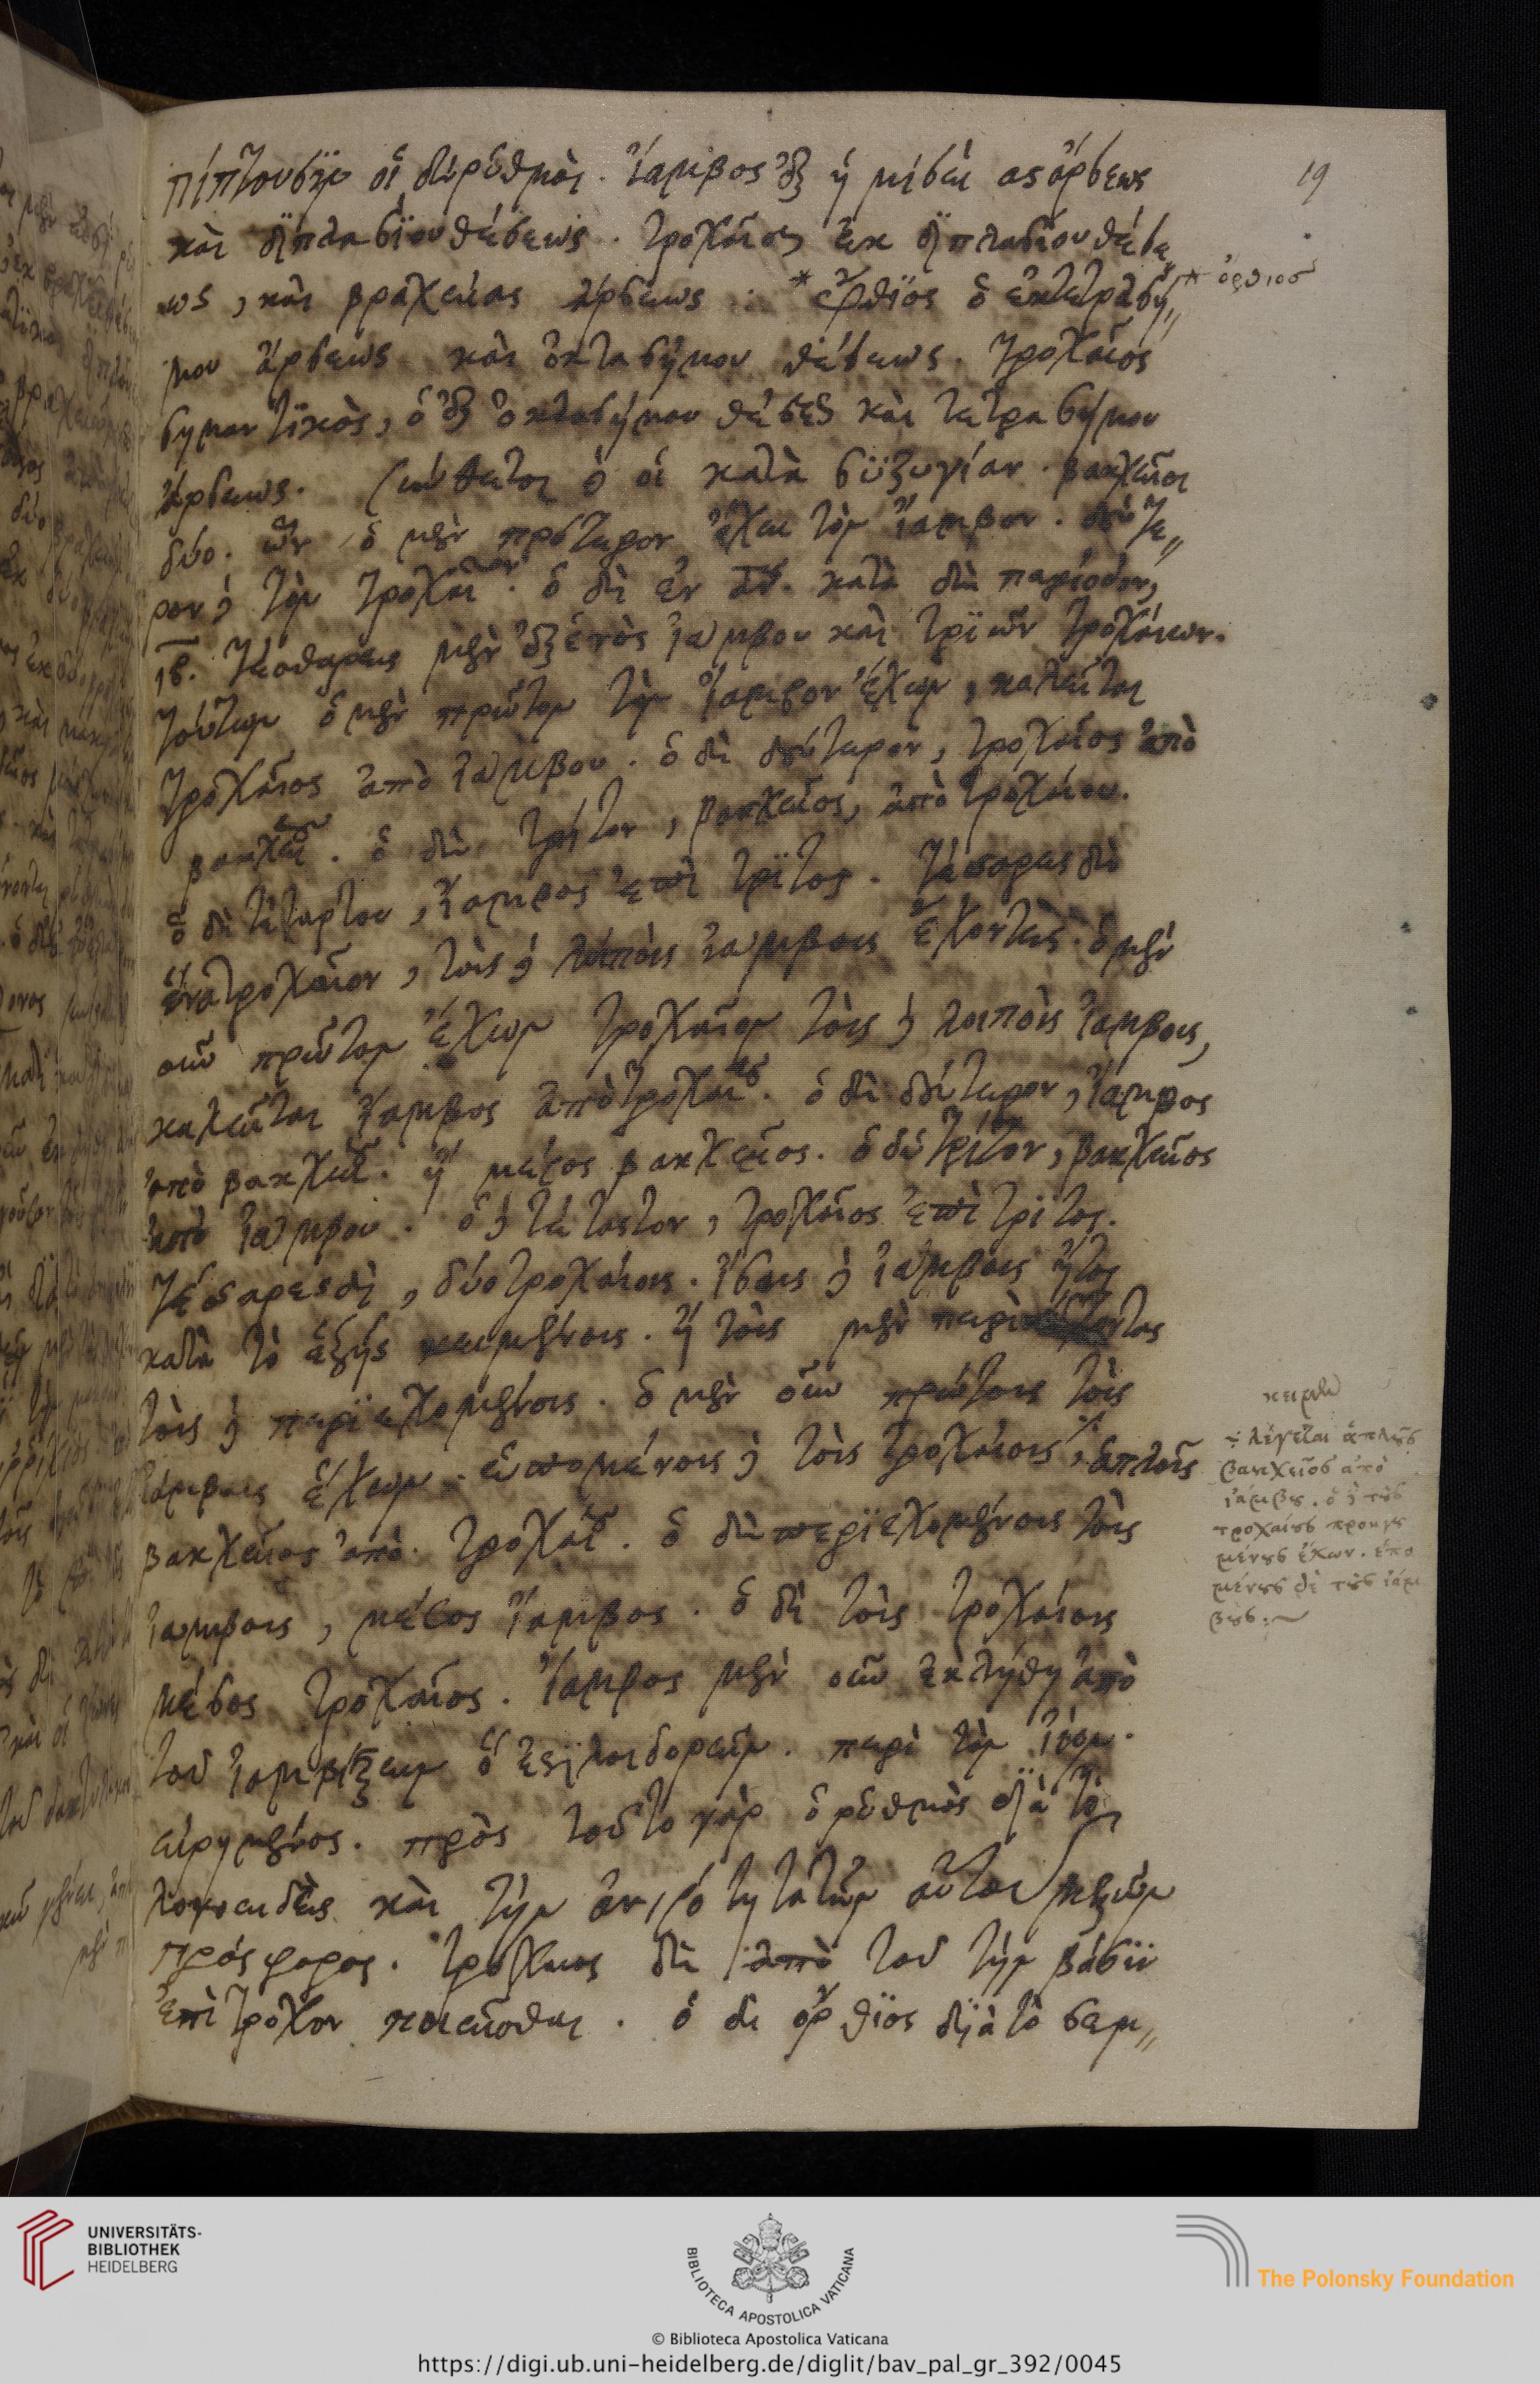 πίπτουσϊν οἱ δὲ ῥυθμοὶ. ἴαμβος ἐξ ἡμίσει ας ἄρσεως
19
καὶ δϊπλασϊου θέσεως. τροχαῖος ἐκ δϊπλασίου θέσε
ως, καὶ βραχείας ἄρσεως : * ὄρθϊος ὁ ἐκ τετραση,,
* ὄρθιος
μου ἄρσεως καὶ ὀκτασήμου θέσεως. τροχαῖος
σημαντϊκὸς, ὁ ἐξ ὀκτασήμου θέσεως καὶ τετρασήμου
ἄρσεως. σύνθετοι δὲ οἱ κατὰ συζυγίαν. βακχεῖοι
δύο. ὧν ὁ μὲν πρότερον ἔχει τὸν ἴαμβον. δεύτε,,
ρον δὲ τὸν τροχαῖον. ὁ δὲ ἐν κατὰ δὲ περίοδον,
ιβ. τέσσαρεις μὲν ἐξ ἑνὸς ἰάμβου καὶ τρϊῶν τροχαίων.
τούτων ὁ μὲν πρῶτον τὸν ἴαμβον ἔχων, καλεῖται
τροχαῖος ἀπὸ ἰάμβου. ὁ δὲ δεύτερον, τροχαῖος ἀπὸ
βακχείου. ὁ δὲ τρίτον, βακχεῖος, ἀπὸ τροχαίου.
ὁ δὲ τέταρτον, ἴαμβος ἐπὶ τρϊτος. τέσσαρεις δὲ
ἕνα τροχαῖον, τοὶς δὲ λοιποὶς ἰάμβοις ἔχοντες. ὁ μὲν
οὖν πρῶτον ἔχων τροχαῖον τοὶς δὲ λοιποὶς ἰάμβοις,
καλεῖται ἴαμβος ἀπὸ τροχαίου. ὁ δὲ δεύτερον, ἴαμβος
ἀπὸ βακχείου. ἢ μέσος βακχεῖος. ὁ δὲ τρίτον, βακχεῖος
ἀπὸ ἰάμβου. ὁ δὲ τέταρτον, τροχαῖος ἐπὶ τρϊτος.
τέσσαρες δὲ, δύο τροχαίοις. ἴσοις δὲ ἰάμβοις ἤτοι
κατὰ τὸ ἑξῆς κειμένοις. ἢ τοὶς μὲν περὶ
τοὶς δὲ περϊεχομένοις. ὁ μὲν οὖν πρώτοις τοὶς
ἰάμβοις ἔχων. ἑπομένοις δὲ τοὶς τροχαίοις, ÷ ἁπλοῦς
βακχεῖος ἀπὸ τροχαίου. ὁ δὲ περϊεχομένοις τοὶς
ἰάμβοις, μέσος ἴαμβος. ὁ δὲ τοὶς τροχαίοις
μέσος τροχαῖος. ἴαμβος μὲν οὖν ἐκλήθη ἀπὸ
τοῦ ἰαμβίζειν ὅ ἐστι λοιδορεῖν. περὶ τὸν ἰὸν.
εἰρημένος. πρὸς τοῦτο γὰρ ὁ ῥυθμὸς δϊὰ τὸ
λογοειδὲς καὶ τὴν ἀνισότητα τῶν αὐτοῦ μερῶν
πρόσφορος. τροχαῖος δὲ ἀπὸ τοῦ τὴν βάσϊν
ἐπὶ τρόχον ποιεῖσθαι. ὁ δὲ ὄρθϊος δϊὰ τὸ σεμ,,
÷ λέγεται ἁπλοῦς
βακχεῖος ἀπὸ
ἰάμβου. ὁ δὲ τοὺς
τροχαίους προηγου
μένους ἔχων. ἑπο
μένους δὲ τοὺς ἰάμ
βους :~
UNIVERSITÄTS-
BIBLIOTHEK
HEIDELBERG
BIBLIOTECA APOSTOLICA VATICANA
The Polonsky Foundation
© Biblioteca Apostolica Vaticana
https://digi.ub.uni-heidelberg.de/diglit/bav_pal_gr_392/0045